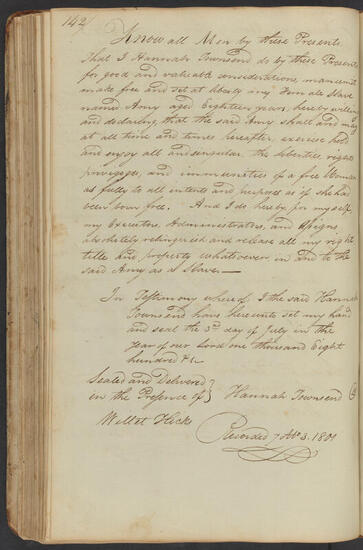 142
Know all Men by these Presents
that I Hannah Townsend do by these Presents
for good and valuable considerations, manumit
make free and set at liberty my Female Slave
named Amy aged Eighteen years, hereby willing
and declaring that the said Amy shall and may
at all time and times hereafter, exercise hold
and enjoy all and singular the liberties rights
priveleges, and immunities of a free Woman
as fully to all intents and purposes as if she had
been born free. And I do hereby for myself
my Executors, Administrators, and Assigns
absolutely relinquish and release all my right
title and property whatsoever in and to the
said Amy as a Slave.
In Testimony whereof I the said Hannah
Townsend have hereunto set my hand
and seal the 3rd day of July in the
year of our Lord one thousand Eight
hundred & 1.
Sealed and Delivered
in the Presence of } Hannah Townsend
Willet Hicks
Recorded 3. 1801